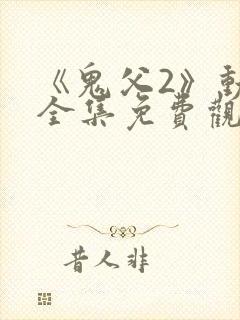 《鬼父2》動
全集免費觀
昔人非